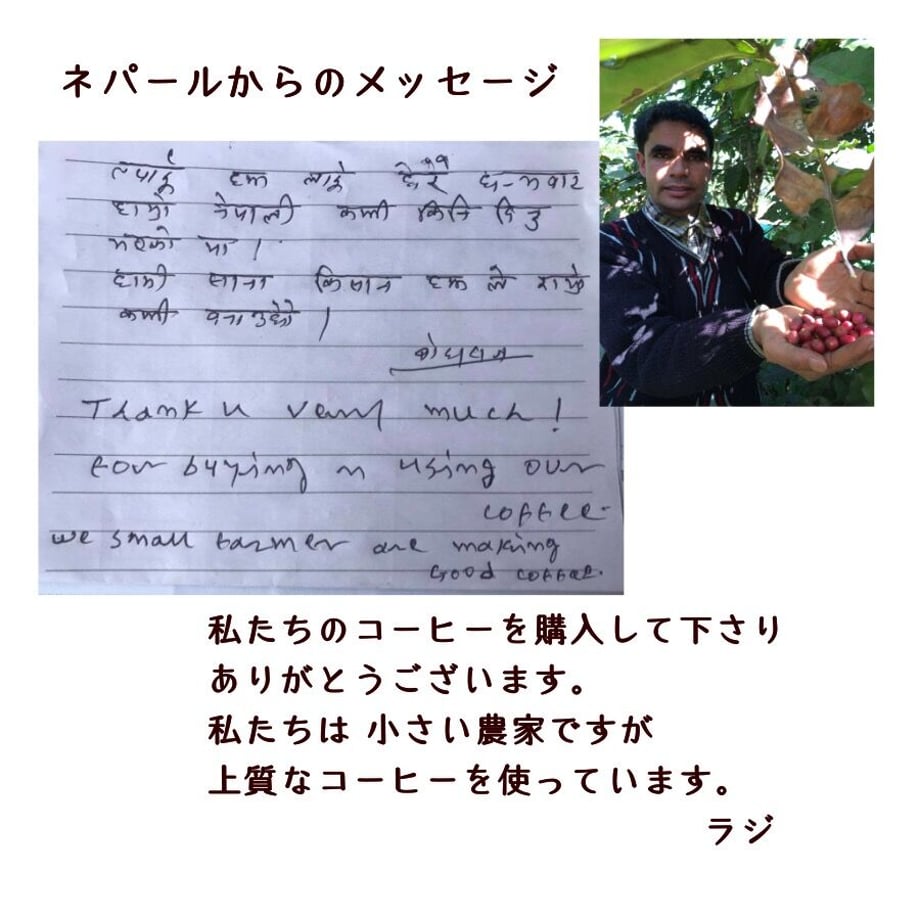 ネパールからのメッセージ
हामी नेपाली कफी किनि दिनु
भएको मा ।
हामी साना किसान हरू ले राम्रो
कफी बनाउछौ ।
Thank u very much!
For buying n using our
coffee.
we small farmer are making
Good coffee.
私たちのコーヒーを購入して下さり
ありがとうございます。
私たちは 小さい農家ですが
上質なコーヒーを使っています。
ラジ